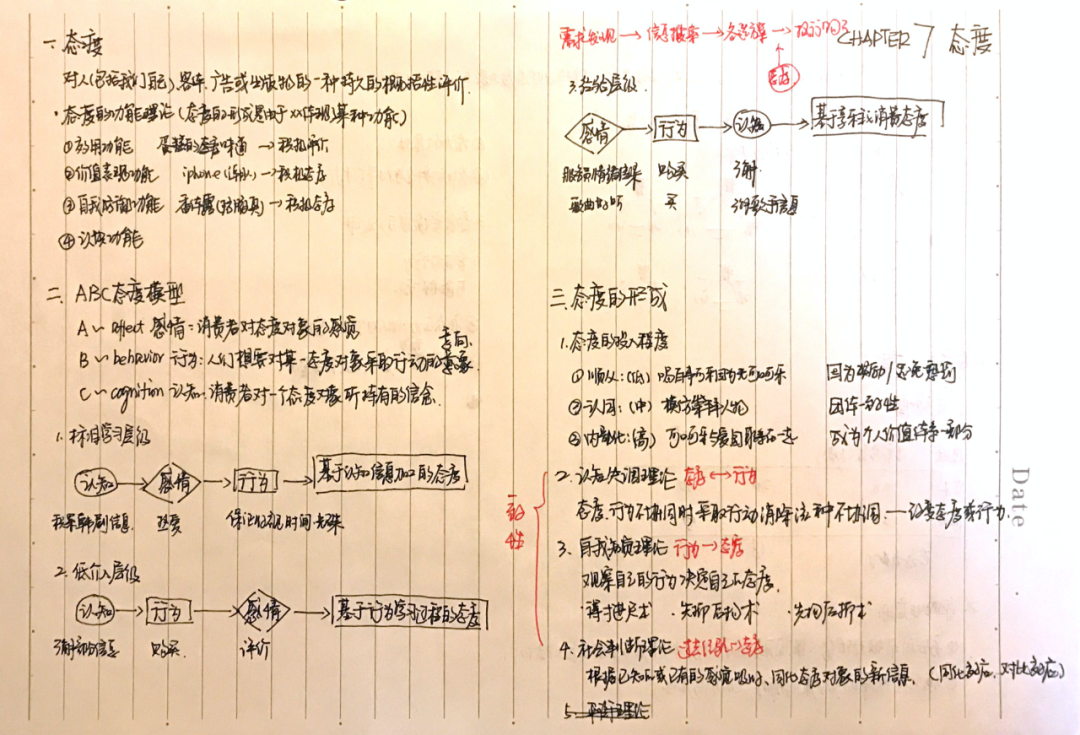 CHAPTER 7 态度
一、态度
对人(包括我们自己)、客体、广告或出版轮的一种持久的概括性评价.
·态度的功能理论(态度的形成是由于xx体现某种功能)
①效用功能 蛋糕的味道→积极评价
②价值表现功能 iphone(年轻人)→积极态度
③自我防御功能 →积极态度
④认知功能
二、ABC态度模型
A~affect 感情:消费者对态度对象的感觉
意向.
B~behavior 行为:人们想要对某一态度对象采取行动的意象.
C~cognition 认知:消费者对一个态度对象所持有的信念.
1.标准学习层级
认知→感情→行为→基于认知信息加工的态度
搜集韩剧信息 热爱 保证收视时间
2.低介入层级
认知→行为→感情→基于行为学习过程的态度
了解初步信息 购买 评价
需求发现→信息搜索→备选方案→
态度
3.经验层级
感情→行为→认知→基于享乐主义消费态度
购买 了解
歌曲好听 买 了解歌手信息
三、态度的形成
1.态度的投入程度
①顺从:(低) 喝百事可乐因为无可口可乐 因为奖励/避免惩罚
②认同:(中) 模仿 团体一致性
③内化:(高) 可口可乐与爱国联系在一起 成为个人价值体系一部分
一致性
2.认知失调理论 态度↔行为
态度、行为不协同时采取行动消除这种不协调.—改变态度或行为.
3.自我知觉理论 行为→态度
观察自己的行为决定自己态度.
·得寸进尺术 ·先抑后扬术 ·先扬后抑术
4.社会判断理论 →态度
根据已知的或已有的感觉吸收、同化态度对象的新信息.(同化效应.对比效应)
5.平衡理论
Date